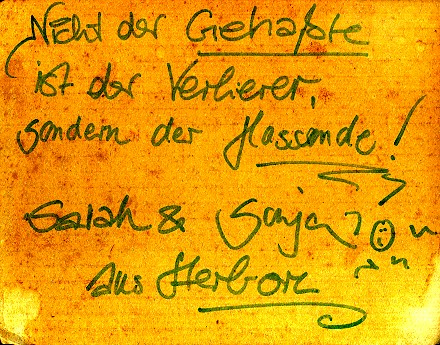 Nicht der Gehaßte
ist der Verlierer,
sondern der Hassende!
Sarah & Sonja
aus Herborn